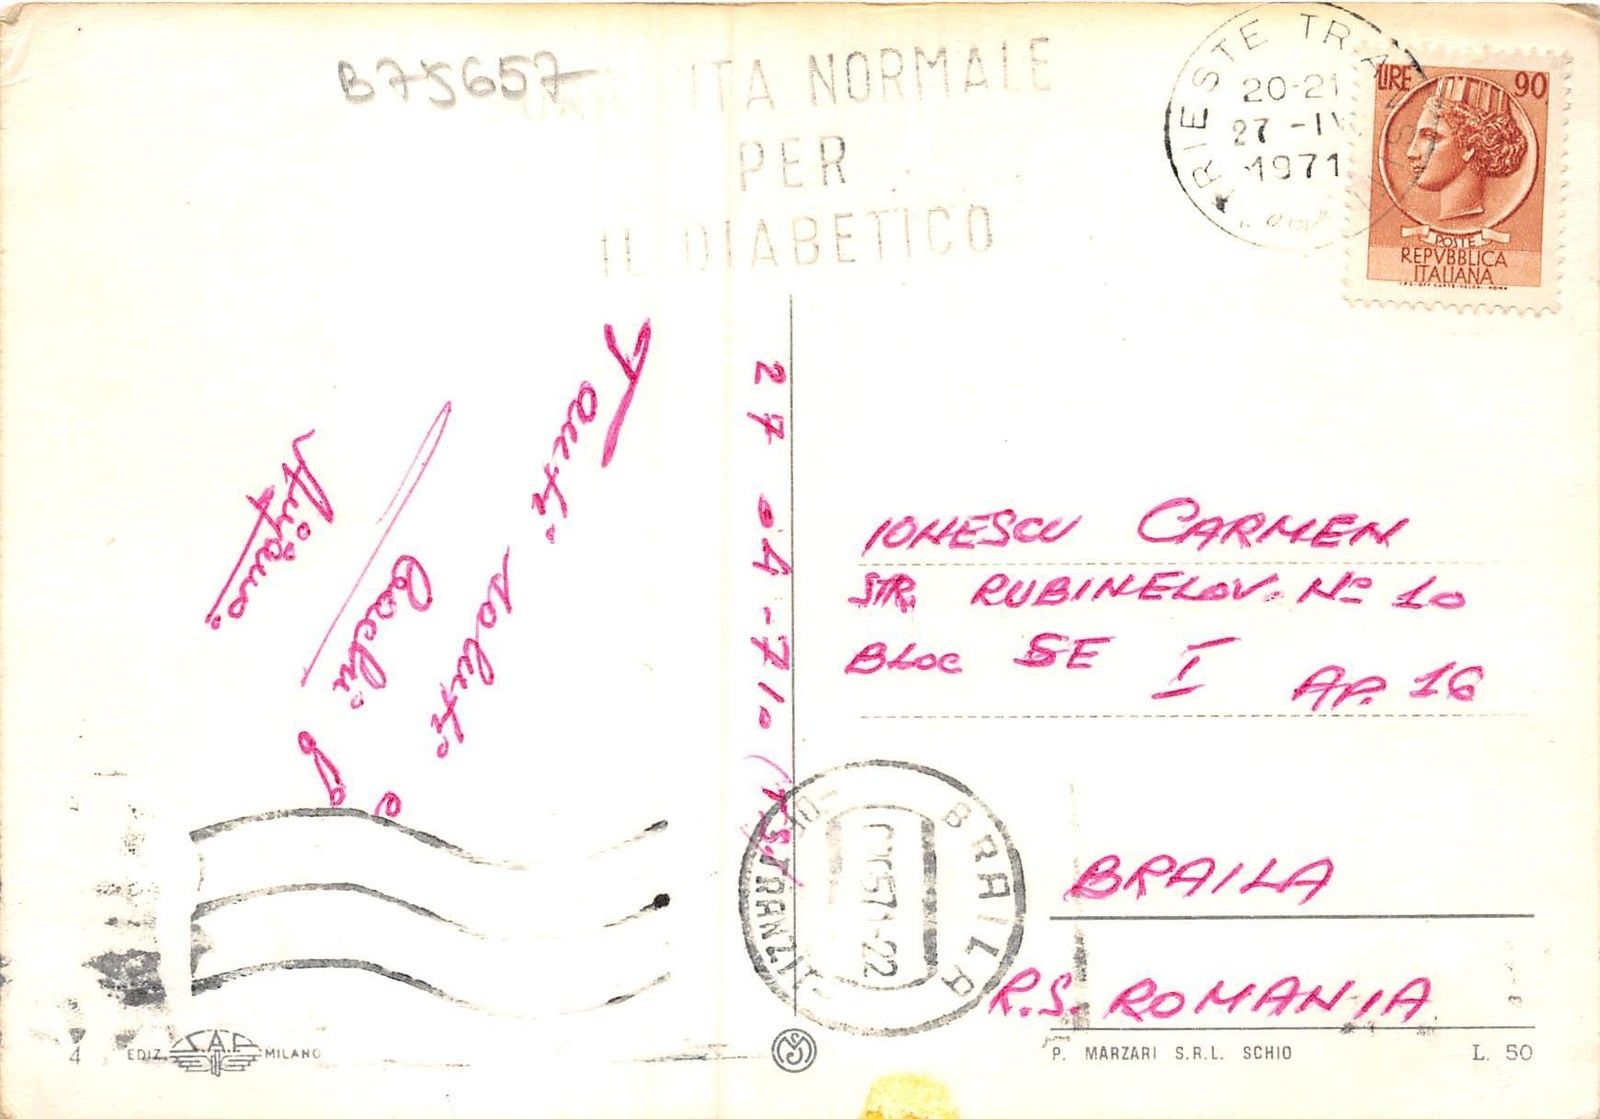 B75657
VITA NORMALE
PER
IL DIABETICO
TRIESTE TRANSITI
20-21
27 -IV
1971
LIRE 90
POSTE
REPVBBLICA
ITALIANA
Tanti saluti
e
27-04-71
IONESCU CARMEN
STR. RUBINELOV. No 10
BLOC 5E I AP. 16
BRAILA
R.S. ROMANIA
BRAILA
TRANZIT
571-22
4 EDIZ. S.A.F. MILANO
P. MARZARI S.R.L. SCHIO L. 50